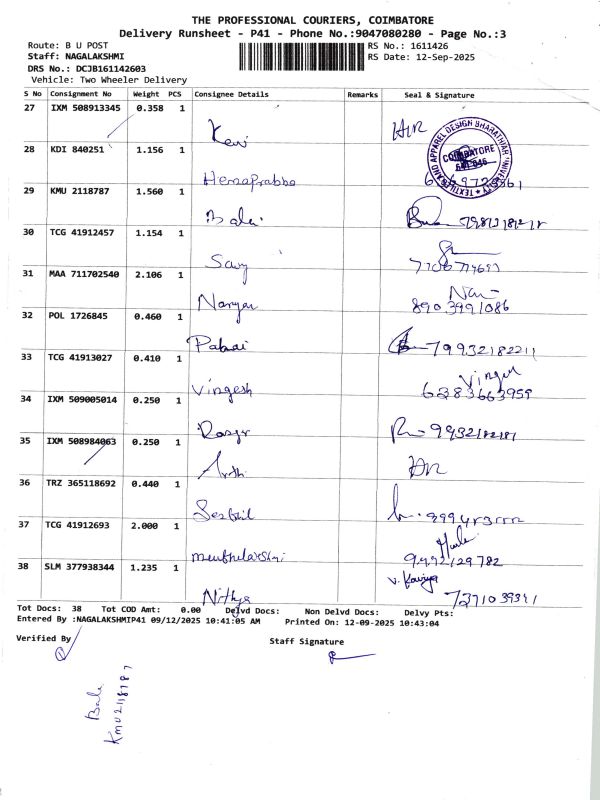 THE PROFESSIONAL COURIERS, COIMBATORE
Delivery Runsheet - P41 - Phone No.:9047080280 - Page No.:3
Route: B U POST RS No.: 1611426
Staff: NAGALAKSHMI RS Date: 12-Sep-2025
DRS No.: DCJB161142603
Vehicle: Two Wheeler Delivery
S No Consignment No Weight PCS Consignee Details Remarks Seal & Signature
27 IXM 508913345 0.358 1
TEXTILES AND APPAREL DESIGN BHARATHIAR UNIVERSITY
COIMBATORE
641 046
28 KDI 840251 1.156 1
Hemaprabha
29 KMU 2118787 1.560 1
30 TCG 41912457 1.154 1
31 MAA 711702540 2.106 1
8903991086
32 POL 1726845 0.460 1
79932182211
33 TCG 41913027 0.410 1
Vingesh 6383663959
34 IXM 509005014 0.250 1
35 IXM 508984063 0.250 1
36 TRZ 365118692 0.440 1
37 TCG 41912693 2.000 1
9992129782
38 SLM 377938344 1.235 1
V. Kaviya
Nithya 7371039391
Tot Docs: 38 Tot COD Amt: 0.00 Delvd Docs: Non Delvd Docs: Delvy Pts:
Entered By :NAGALAKSHMIP41 09/12/2025 10:41:05 AM Printed On: 12-09-2025 10:43:04
Verified By Staff Signature
Bala
KMU2118787